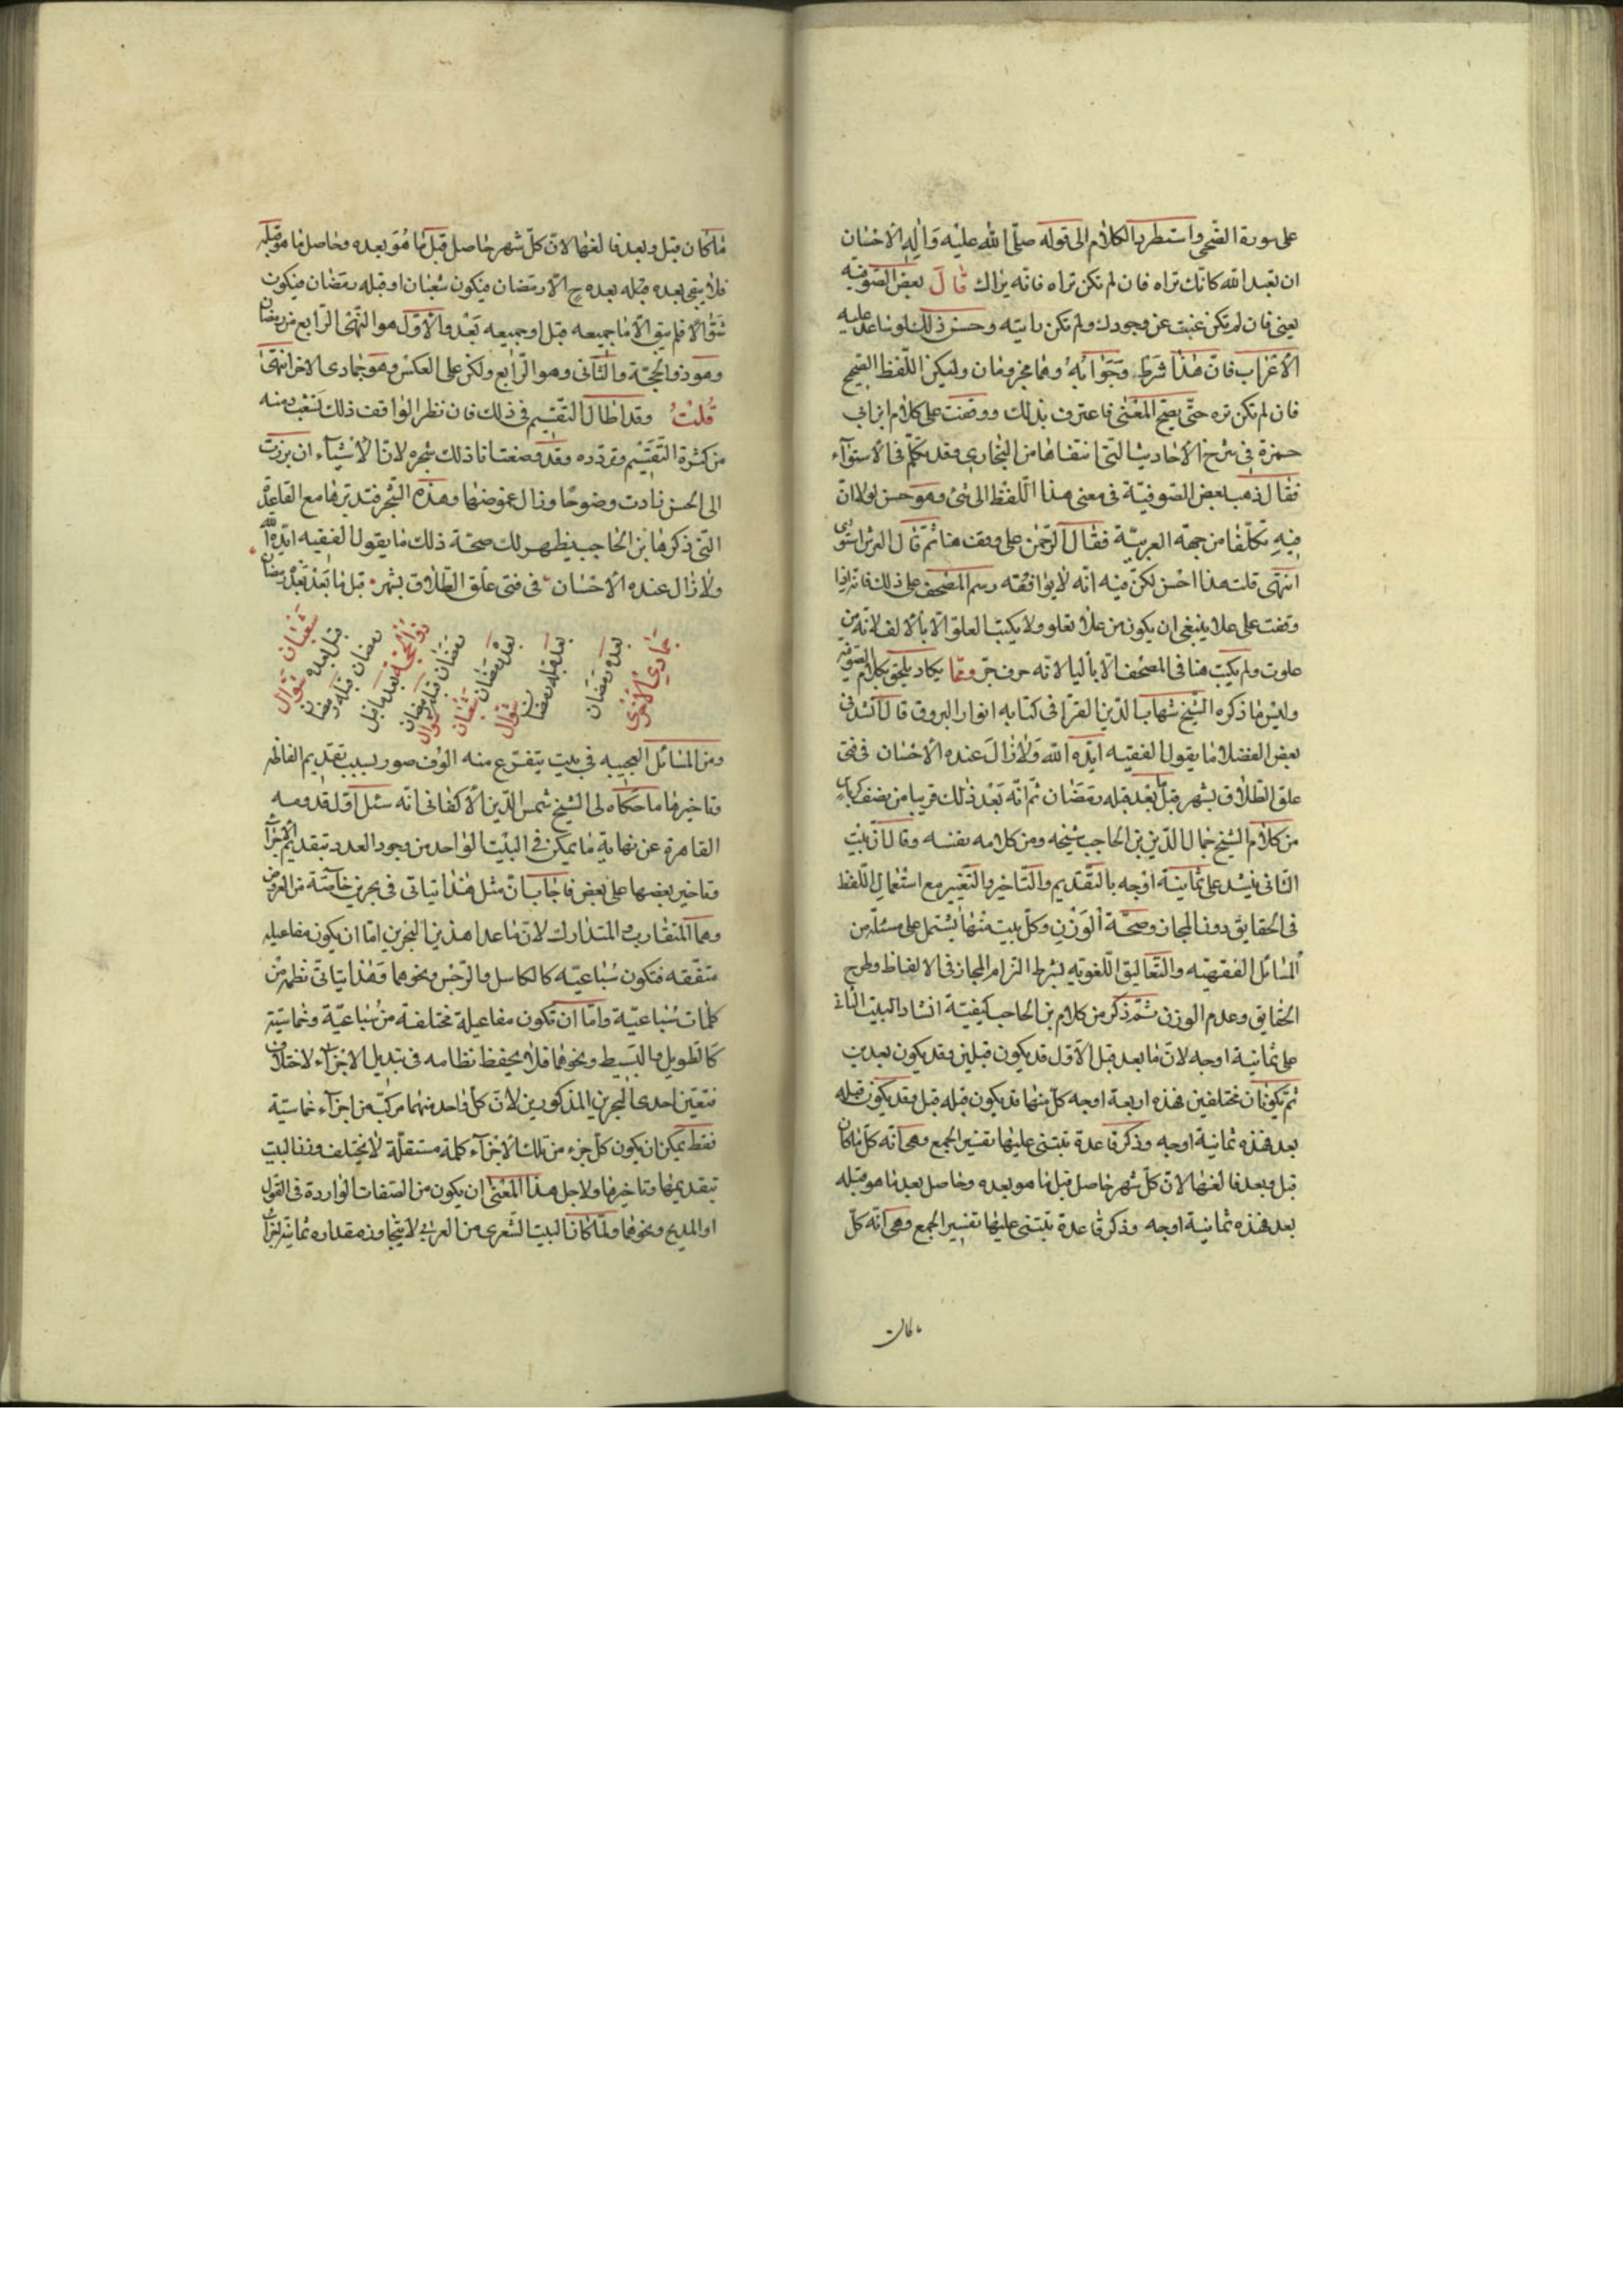 على سورة الضحى واستطرد الكلام الى قوله صلّى الله عليه وَاٰلِهِ الاحسان
ان تعبد الله كانّك تراه فان لم تكن تراه فانّه يراك قالَ بعض الصّوفيّه
يعنى فان لم تكن غبت عن وجودك ولم تكن رايته وحسن ذلك لو ساعد عليه
الاعراب فانّ هذا شرط وجوابُهُ وهما مجزومان وليكن اللّفظ الصّحيح
فان لم تكن تره حتّى يصحّ المعنى فاعترف بذلك ووقفت على كلام ابن ابى
حمزة فى شرح الأحاديث التى انتقاها من البخارى وقد تكلّم فى الاستوآء
فقال ذهب بعض الصّوفيّة فى معنى هذا اللّفظ الى شئ وهو حسن لولا انّ
فيه تكلّفا من جهة العربيّة فقال الرّحمن على ووقف هنا ثمّ قال العرش استوى
انتهى قلت هذا احسن لكن فيه انّه لا يوافقه رسم المصحف على ذلك فانّه اذا
وقفت على علا ينبغى ان يكون من علا تعلو ولا يكتب العلو الّا بالالف لانّه من
علوت ولم يكتب هنا فى المصحف الّا باليا لانّه حرف جرّ وممّا يكاد يلحق بكلام الصّوفيّه
وليس ما ذكره الشّيخ شهاب الدّين القرافى كتابه انوار البروق قال انشدنى
بعض الفضلا ما يقول الفقيه ايّده الله وَلا زالَ عنده الاحسان فى فتى
علق الطّلاق بشهر قبل ما بعد قبله رمضان ثم انّه بعد ذلك قريبا من نصف كراس
من كلام الشّيخ جمال الدّين بن الحاجب شيخه ومن كلامه نفسه وقال انّ بيت
الثّانى ينشد على ثمانية اوجه بالتّقديم والتّاخير والتّغيير مع استعمال اللّفظ
فى الحقايق دون المجاز وصحّة الوَزْنِ وكلّ بيت منها يشتمل على مسئلة من
المسائل الفقهيّه والتّعاليق اللّغويّه بشرط التزام المجاز فى الالفاظ وطرح
الحقايق وعدم الوزن ثمّ ذكر من كلام بن الحاجب كيفيّة انشاد البيت الثانى
على ثمانية اوجه لانّ ما بعد قبل الاوّل قد يكون قبلين وقد يكون بعدين
ثم يكونان مختلفين هذه اربعة اوجه كلّ منها قد يكون قبله قبل وقد يكون قبله
بعد هذه ثمانية اوجه وذكر قاعدة تبتنى عليها تفسير الجمع وهى انّه كلّ ما كان
قبل وبعد فالغها لانّ كلّ شهر حاصل قبل ما هو بعده وحاصل بعد ما هو قبله
بعد هذه ثمانية اوجه وذكر قاعدة تبتنى عليها تفسير الجمع وهى انّه كلّ
ما كان
ما كان قبل وبعد فالغها لانّ كلّ شهر حاصل قبل ما هُوَ بعده وحاصل ما هو قبله
فلا يبقى بعده قبله بعده ح الّا رمضان فيكون شعبان او قبله رمضان فيكون
شوّالا فلم يبق الّا ما جميعه قبل او جميعه بَعْد والاوّل هو الشّهر الرّابع من رمضان
وهو ذو الحجّة والثّانى وهو الرّابع ولكن على العكس وهو جمادى الاخر انتهىٰ
قُلتُ وقد اطال التقسيم فى ذلك فان نظر الواقف ذلك تعب ذهنه
من كثرة التّقسيم وتردّده وقد وضعت انا ذلك شجره لانّ الأشيآء ان برزت
الى الحسن زادت وضوحا وزال غموضها وهذه الشّجر فتدبّرها مع القاعدة
التى ذكرها بن الحاجب يظهر لك صحّة ذلك ما يقول الفقيه ايّده الله
ولا زال عنده الاحسان فى فتى علّق الطّلاق بشهر قبل ما بَعْد بَعْد رمضان
جمادى الاخرى
بعده رمضان
بعد قبله رمضان
شوال
بعد رمضان
شعبان
رمضان قبله رمضان
شوال
ذو الحجّة بعد ما قبل
رمضان قبله رمضان
قبل بعده شوال
شعبان
ومن المسائل العجيبه فى بيت يتفرّع منه الوف صور بسبب تقديم الفاظه
وتاخيرها ما حكاه لى الشّيخ شمس الدّين الاكفانى انّه سئل اوّل قدومه
القاهرة عن نهاية ما يمكن فى البيت الواحد من وجود العدد بتقديم الاجزآء
وتاخير بعضها على بعض فاجاب انّ مثل هذا يتاتى فى بحرين خاصّة من العروض
وهما المتقارب والمتدارك لانّ ما عدا هذين البحرين امّا ان يكون مفاعيله
متّفقه فتكون سُباعيّه كالكامل والرّجس ونحوهما وَهذا يتاتّى نظمه من
كلمات سُباعيّة وامّا ان تكون مفاعيلة مختلفة من سُباعيّة وخماسيّة
كالطويل والبسيط ونحوهما فلا يحفظ نظامه فى تبديل الاجزآء لاختلاف
فتعيّن احدى البحرين المذكورين لانّ كلّ واحد منهما مركّب من اجزآء خماسيّة
فقط يمكن ان يكون كلّ جزء من تلك الاجزآء كلمة مستقلّة لا يختلف وزن البيت
بتقديمها وتاخيرها ولاجل هذا المعنى ان يكون من الصّفات الواردة فى القول
او المديح ونحوهما ولمّا كان البيت الشّعرى من العربى لا يتجاوز مقداره ثمانية اجزآء